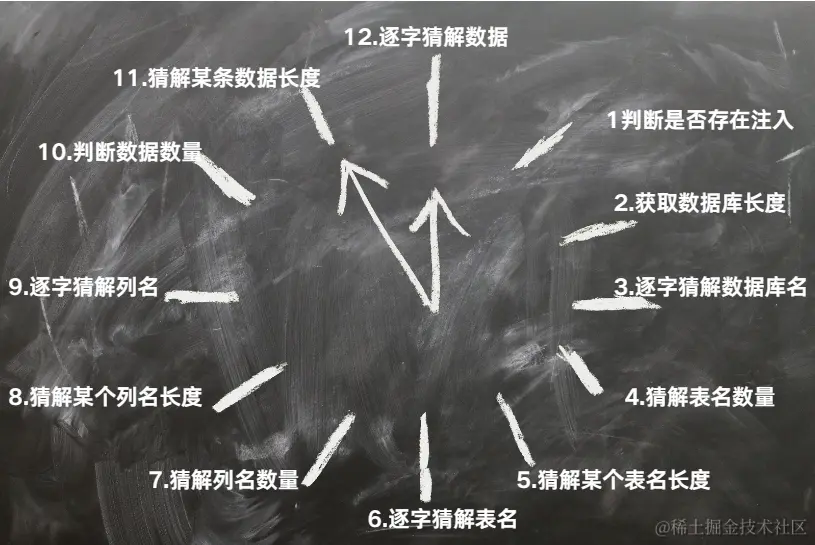 12.逐字猜解数据
11.猜解某条数据长度
1判断是否存在注入
10.判断数据数量
2.获取数据库长度
9.逐字猜解列名
3.逐字猜解数据库名
8.猜解某个列名长度
4.猜解表名数量
7.猜解列名数量
5.猜解某个表名长度
6.逐字猜解表名
@稀土掘金技术社区